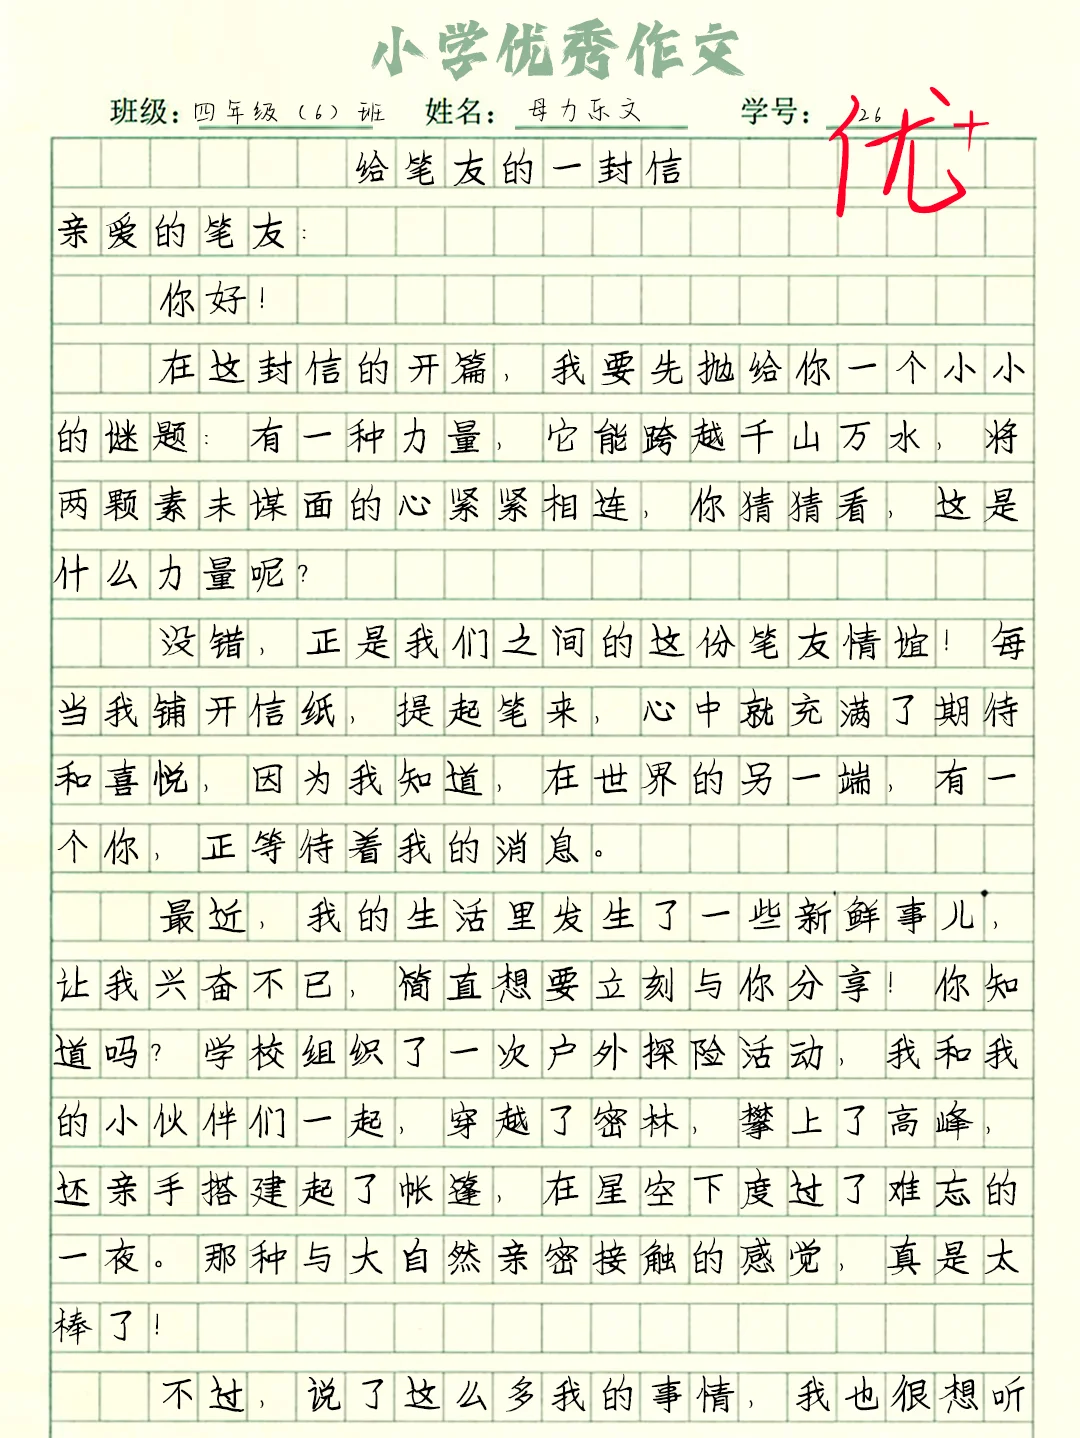 小学优秀作文
班级：四年级（6）班 姓名：母力乐文 学号：26
优+
给笔友的一封信
亲爱的笔友：
你好！
在这封信的开篇，我要先抛给你一个小小
的谜题：有一种力量，它能跨越千山万水，将
两颗素未谋面的心紧紧相连，你猜猜看，这是
什么力量呢？
没错，正是我们之间的这份笔友情谊！每
当我铺开信纸，提起笔来，心中就充满了期待
和喜悦，因为我知道，在世界的另一端，有一
个你，正等待着我的消息。
最近，我的生活里发生了一些新鲜事儿，
让我兴奋不已，简直想要立刻与你分享！你知
道吗？学校组织了一次户外探险活动，我和我
的小伙伴们一起，穿越了密林，攀上了高峰，
还亲手搭建起了帐篷，在星空下度过了难忘的
一夜。那种与大自然亲密接触的感觉，真是太
棒了！
不过，说了这么多我的事情，我也很想听